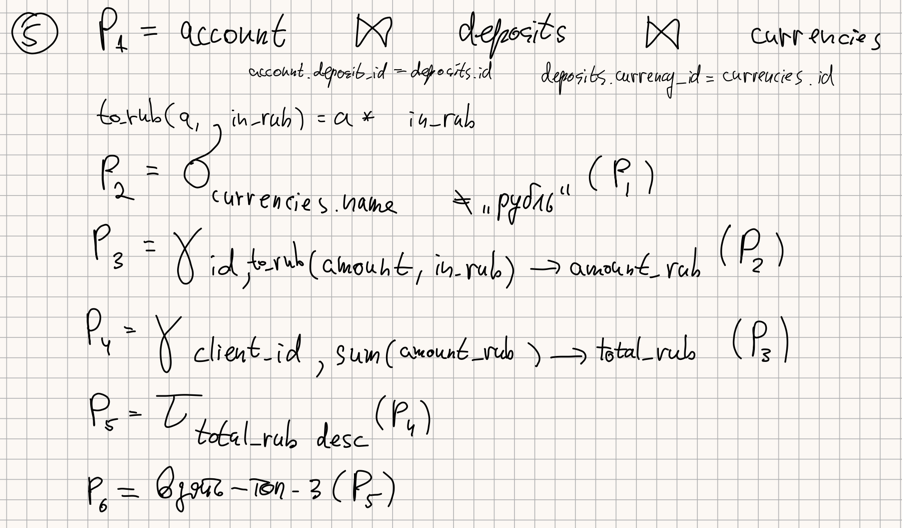 ⑤ P₁ = account ⋈ deposits ⋈ currencies
account.deposit_id = deposits.id deposits.currency_id = currencies.id
to_rub(a, in_rub) = a * in_rub
P₂ = σ currencies.name ≠ „рубль“ (P₁)
P₃ = γ id, to_rub(amount, in_rub) → amount_rub (P₂)
P₄ = γ client_id, sum(amount_rub) → total_rub (P₃)
P₅ = τ total_rub desc (P₄)
P₆ = взять-топ-3 (P₅)